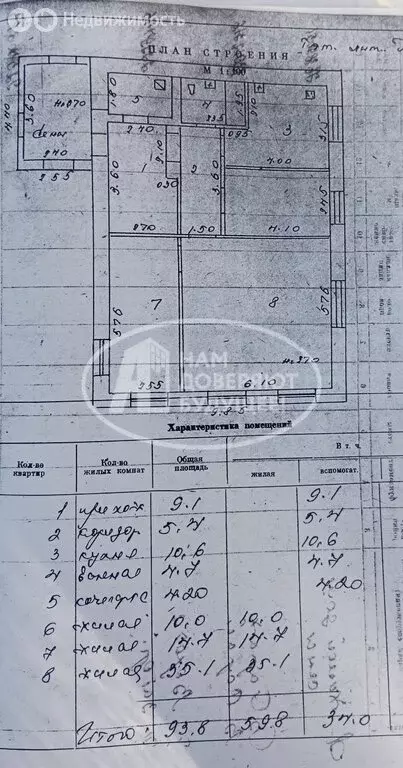 Недвижимость
ПЛАН СТРОЕНИЯ
М 1:100
1.80
5
4
3
3.60
Н-270
сени
240
255
270
235
095
3.15
1
2
2.10
3.60
3.60
050
4.00
2.45
270
1.50
4.10
7
8
576
576
Н-270
255
6.10
9.85
НАМ
ДОВЕРЯЮТ
БУДУЩЕЕ
Характеристика помещений
Кол-во квартир
Кол-во жилых комнат
Общая площадь
В т. ч.
жилая
вспомогат.
1 прихож 9.1 9.1
2 коридор 5.4 5.4
3 кухня 10.6 10.6
4 ванная 4.7 4.7
5 кочегарка 4.20 4.20
6 жилая 10.0 10.0
7 жилая 14.7 14.7
8 жилая 35.1 35.1
Итого: 93.8 59.8 34.0